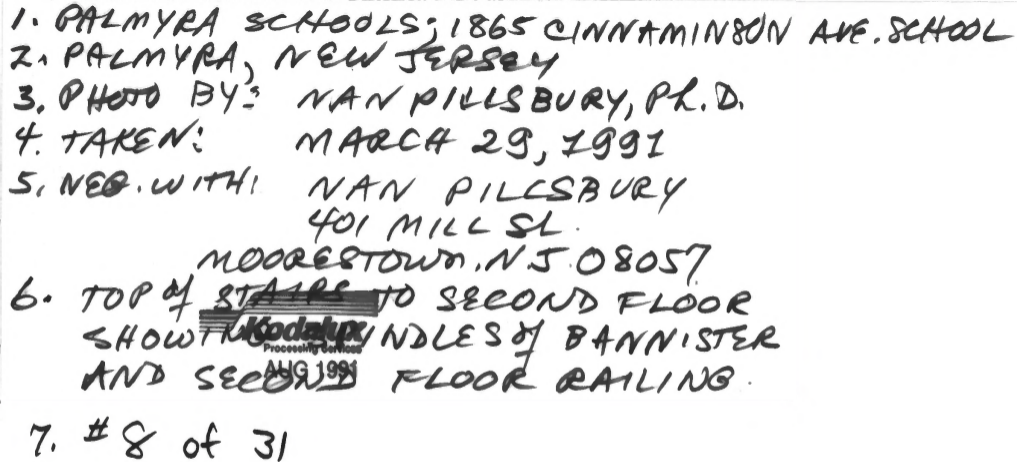 1. PALMYRA SCHOOLS; 1865 CINNAMINSON AVE. SCHOOL
2. PALMYRA, NEW JERSEY
3. PHOTO BY: NAN PILLSBURY, Ph. D.
4. TAKEN: MARCH 29, 1991
5. NEG. WITH: NAN PILLSBURY
401 MILL St.
MOORESTOWN, NJ 08057
6. TOP of STAIRS TO SECOND FLOOR
SHOWING SPINDLES of BANNISTER
Kodalux
Processing Services
AND SECOND FLOOR RAILING.
AUG 1991
7. # 8 of 31